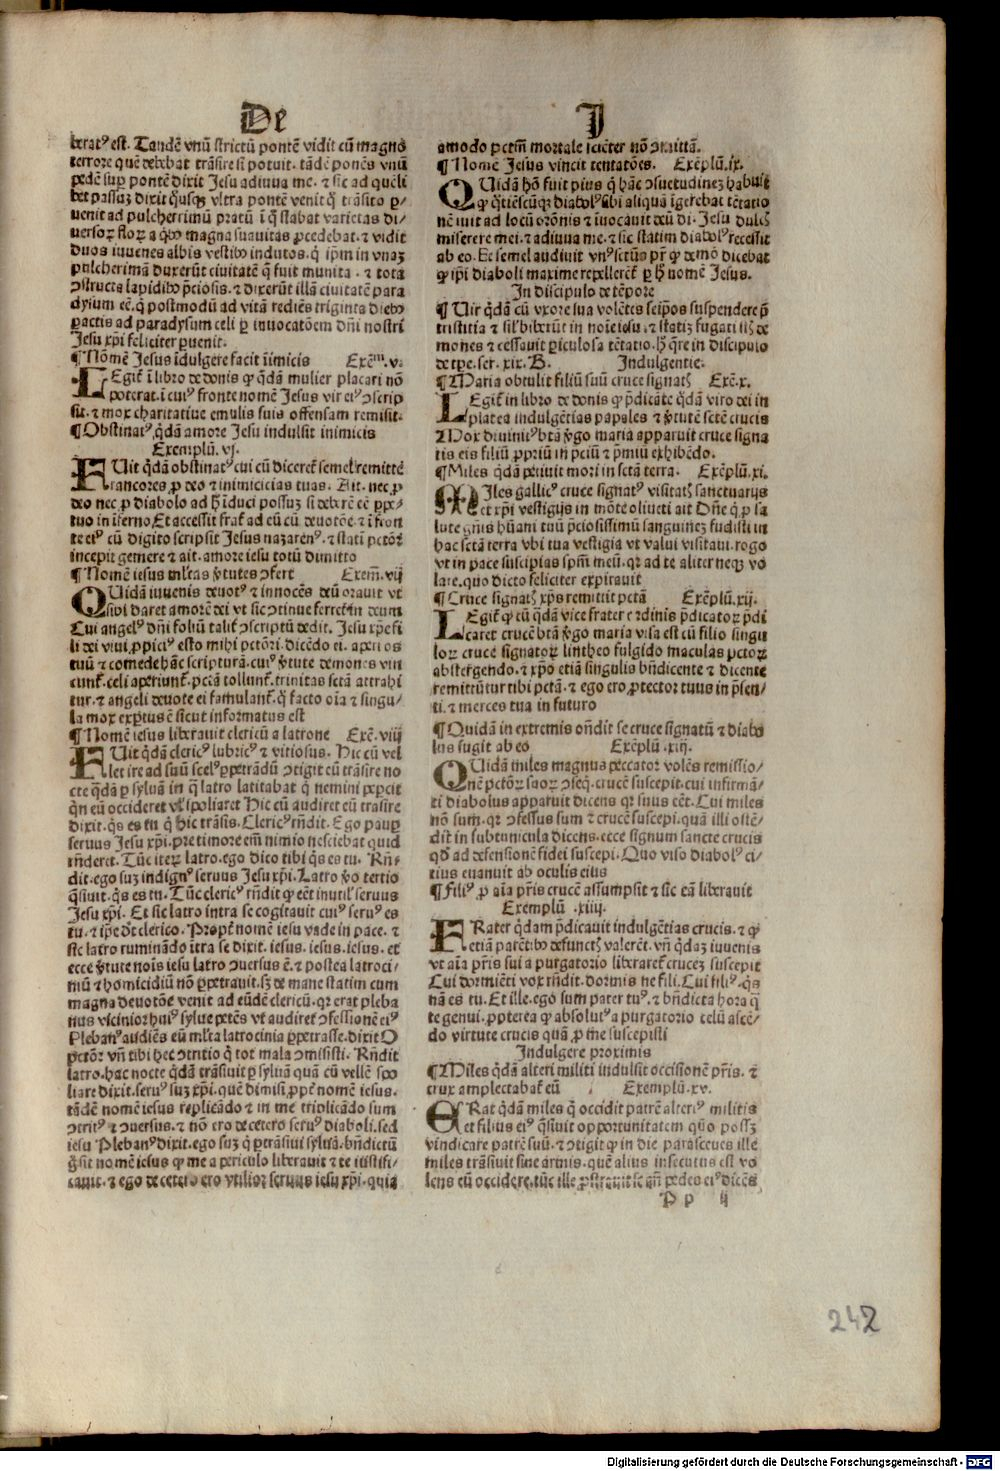 De
J
beratꝰ est. Tandē vnū strictū pontē vidit cū magno
terrore quē debebat trāsire si potuit. tādē ponēs vnū
pedē sup pontē dixit Jesu adiuua me. ⁊ sic ad quēli
bet passuz dixit qͥusqꝫ vltra pontē venit qͥ trāsito p
uenit ad pulcherrimū pratū ī qͦ stabat varietas di/
versoꝝ floꝝ a qͥbꝰ magna suauitas ꝓcedebat. ⁊ vidit
duos iuuenes albis vestibꝰ indutos. qͥ ip̄m in vnaz
pulcherimā duxerūt ciuitatē q̄ fuit munita. ⁊ tota
ↄstructa lapidibꝰ p̄ciosis. ⁊ dixerūt illā ciuitatē para
dysum eē. qͥ postmodū ad vitā rediēs triginta diebꝰ
pactis ad paradysum celi ꝑ inuocatōem dn̄i nostri
Jesu xp̄i feliciter ꝑuenit.
¶ Nomē Jesus īdulgere facit īimicis Exēᵐ.v.
LEgit̄ ī libro de donis ꝙ qͥdā mulier placari nō
poterat. ī cuiꝰ fronte nomē Jesus vir eiꝰ ↄscrip
sit. ⁊ mox charitatiue emulis suis offensam remisit.
¶ Obstinatꝰ qͥdā amore Jesu indulsit inimicis
Exemplū.vj.
FUit qͥdā obstinatꝰ cui cū diceret̄ semel remittē
rancores ꝓ deo ⁊ inimicicias tuas. Ait. nec ꝓ
deo nec ꝓ diabolo ad hͦ īduci possuz si deberē eē ppe/
tuo in īferno. Et accessit frat̄ ad eū cū deuotōe ⁊ ī fron
te eiꝰ cū digito scripsit Jesus nazarenꝰ. ⁊ stati pctōꝛ
incepit gemere ⁊ ait. amore iesu totū dimitto
¶ Nomē iesus ml̄tas v̄tutes ↄfert Exem̄.vij
QUidā iuuenis deuotꝰ ⁊ innocēs deū orauit vt
sibi daret amorē dei vt sic ↄtinue ferret̄ in deum
Cui angelꝰ dn̄i foliū talit̄ ↄscriptū dedit. Jesu xp̄e fi
li dei viui. ꝓpiciꝰ esto mihi pctōri. dicēdo ei. aperi os
tuū ⁊ comede hāc scripturā. cuiꝰ v̄tute demones vin
cunt̄. celi aperiunt̄. pctā tollunt̄. trinitas sctā attrahi
tur. ⁊ angeli deuote ei famulant̄. qͦ facto oīa ⁊ singu/
la mox exptus ē sicut informatus est
¶ Nomē iesus liberauit clericū a latrone Exē.viij
FUit qͥdā clericꝰ lubricꝰ ⁊ vitiosus. Hic cū vel
let ire ad suū scelꝰ ppetrādū ↄtigit eū trāsire no
cte qͣdā ꝑ syluā in qͣ latro latitabat qͥ nemini pepcit
qͥn eū occideret vl̓ spoliaret Hic cū audiret eū trāsire
dixit. qͥs es tu qͥ hic trāsis. Clericꝰ rn̄dit. Ego paup
seruus Jesu xp̄i. pre timore em̄ nimio nesciebat quid
rn̄deret. Tūc iteꝝ latro. ego dico tibi qͥs es tu. Rn̄/
dit. ego suz indignꝰ seruus Jesu xp̄i. Latro v̓o tertio
qͣsiuit. qͥs es tu. Tūc clericꝰ rn̄dit ꝙ eēt inutil̓ seruus
Jesu xp̄i. Et sic latro intra se cogitauit cuiꝰ seruꝰ es
tu. ⁊ ip̄e dt̄ clerico. Propt̄ nomē iesu vade in pace. ⁊
sic latro ruminādo itra se dixit. iesus. iesus. iesus. et
ecce v̄tute nois iesu latro ↄuersus ē. ⁊ postea latroci/
niū ⁊ homicidiū nō ppetrauit. sꝫ de mane statim cum
magna deuotōe venit ad eūdē clericū. qꝛ erat pleba
nus vicinior huiꝰ sylue petēs vt audiret̄ ↄfessionē eiꝰ
Plebanꝰ audiēs eū ml̄ta latrocinia ppetrasse. dixit O
pctōꝛ vn̄ tibi hec ↄtritio qͥ tot mala ↄmisisti. Rn̄dit
latro. hac nocte qͥdā trāsiuit ꝑ syluā quā cū vellē spo
liare dixit. seruꝰ suz xp̄i. quē dimisi ꝓpt̄ nomē iesus.
tādē nomē iesus replicādo ⁊ in me triplicādo sum
ↄtritꝰ ⁊ ↄuersus. ⁊ nō ero de cetero seruꝰ diaboli. sed
iesu Plebanꝰ dixit. ego suz qͥ ꝑtrāsiui syluā. bn̄dictū
gͦ sit nomē iesus ꝙ me a periculo liberauit ⁊ te iustifi/
cauit. ⁊ ego de cetero ero vtilior seruus iesu xp̄i. quia
amodo pctm̄ mortale sciēter nō ↄmittā.
¶ Nomē Jesus vincit tentatōes. Exēplū.ix.
QUidā hō fuit pius qͥ hāc ↄsuetudinez habuit
ꝙ qͥtiēscūqꝫ diabolꝰ sibi aliquā īgerebat tētatio
nē iuit ad locū orōnis ⁊ īuocauit deū di. Jesu dulcꝭ
miserere mei. ⁊ adiuua me. ⁊ sic statim diabolꝰ recessit
ab eo. Et semel audiuit vnꝰ sctūs pr̄ ꝙ demō dicebat
ꝙ ip̄i diaboli maxime repellerēt̄ ꝑ hͦ nomē Jesus.
In discipulo de tēpore
¶ Vir qͥdā cū vxore sua volētes seip̄os suspendere p̄
tristitia ⁊ sil̓ biberūt in noīe iesu. ⁊ statiz fugati sūt de
mones ⁊ cessauit piculosa tētatio. hͦ qͣre in discipulo
de tp̄e. ser. xix. B. Indulgentie.
¶ Maria obtulit filiū suū cruce signatꝭ Exē.x.
LEgit̄ in libro de donis ꝙ p̄dicāte qͥdā viro dei in
platea indulgētias papales ⁊ v̄tutē sctē crucis
⁊ mox diuinitꝰ btā v̓go maria apparuit cruce signa
tis eis filiū ꝓpriū in p̄ciū ⁊ p̄miū exhibēdo.
¶ Miles qͥdā petiuit mori in sctā terra. Exēplū.xi.
MIles gallicꝰ cruce signatꝰ visitatꝭ sanctuarijs
et xp̄i vestigijs in mōte oliueti ait Dn̄e qͥ ꝓ sa
lute gn̄is hūani tuū p̄ciosissimū sanguinez fudisti in
hac sctā terra vbi tua vestigia vt valui visitaui. rogo
vt in pace suscipias spm̄ meū. qꝛ ad te aliter neqꝫ vo
lare. quo dicto feliciter expirauit
¶ Cruce signatꝭ xp̄s remittit pctā Exēplū.xij.
LEgit̄ ꝙ cū qͥdā vice frater ordinis p̄dicatoꝝ p̄di
caret crucē btā v̓go maria visa est cū filio singu
loꝝ cruce signatoꝝ lintheo fulgido maculas pctoꝝ
abstergendo. ⁊ xp̄o etiā singulis bn̄dicente ⁊ dicente
remittūtur tibi pctā. ⁊ ego ero ꝓtector tuus in p̄sen/
ti. ⁊ merces tua in futuro
¶ Quidā in extremis on̄dit se cruce signatū ⁊ diabo
lus fugit ab eo Exēplū.xiij.
QUidā miles magnus peccator volēs remissio/
nē pctōꝝ suoꝝ ↄseq̄. crucē suscepit. cui infirmā/
ti diabolus apparuit dicens qꝛ suus eēt. Cui miles
nō sum. qꝛ ↄfessus sum ⁊ crucē suscepi. quā illi ostē/
dit in subtunicula dicens. ecce signum sancte crucis
qd̄ ad defensionē fidei suscepi. Quo viso diabolꝰ ci/
tius euanuit ab oculis eius
¶ Filiꝰ ꝓ aīa pr̄is crucē assumpsit ⁊ sic eā liberauit
Exemplū.xiiij.
FRater qͥdam p̄dicauit indulgētias crucis. ⁊ ꝙ
etiā parētibꝰ defunctꝭ valerēt. vn̄ qͥdaz iuuenis
vt aīa pr̄is sui a purgatorio liberaret̄ crucez suscepit
Cui dormiēti vox rn̄dit. dormis ne fili. Cui filiꝰ. qͥs
nā es tu. Et ille. ego sum pater tuꝰ. ⁊ bn̄dicta hora qͣ
te genui. ꝓpterea ꝙ absolutꝰ a purgatorio celū ascē/
do virtute crucis quā ꝓ me suscepisti
Indulgere proximis
¶ Miles qͥdā alteri militi indulsit occisionē pr̄is. ⁊
crux amplectabat̄ eū Exemplū.xv.
ERat qͥdā miles qͥ occidit patrē alteriꝰ militis
et filius eiꝰ qͣsiuit opportunitatem quo possꝫ
vindicare patrē suū. ⁊ ↄtigit ꝙ in die parasceues ille
miles trāsiuit sine armis. quē alius insecutus est vo
lens eū occidere. tūc ille ꝓstrauit se an̄ pedes eiꝰ dicēs
P p ij
242
Digitalisierung gefördert durch die Deutsche Forschungsgemeinschaft - DFG